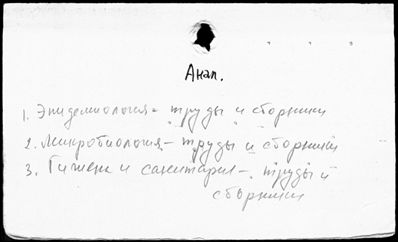 Анал.
1. Эпидемиология – труды и сборники
2. Микробиология – труды и сборники
3. Гигиена и санитария – труды и
сборники